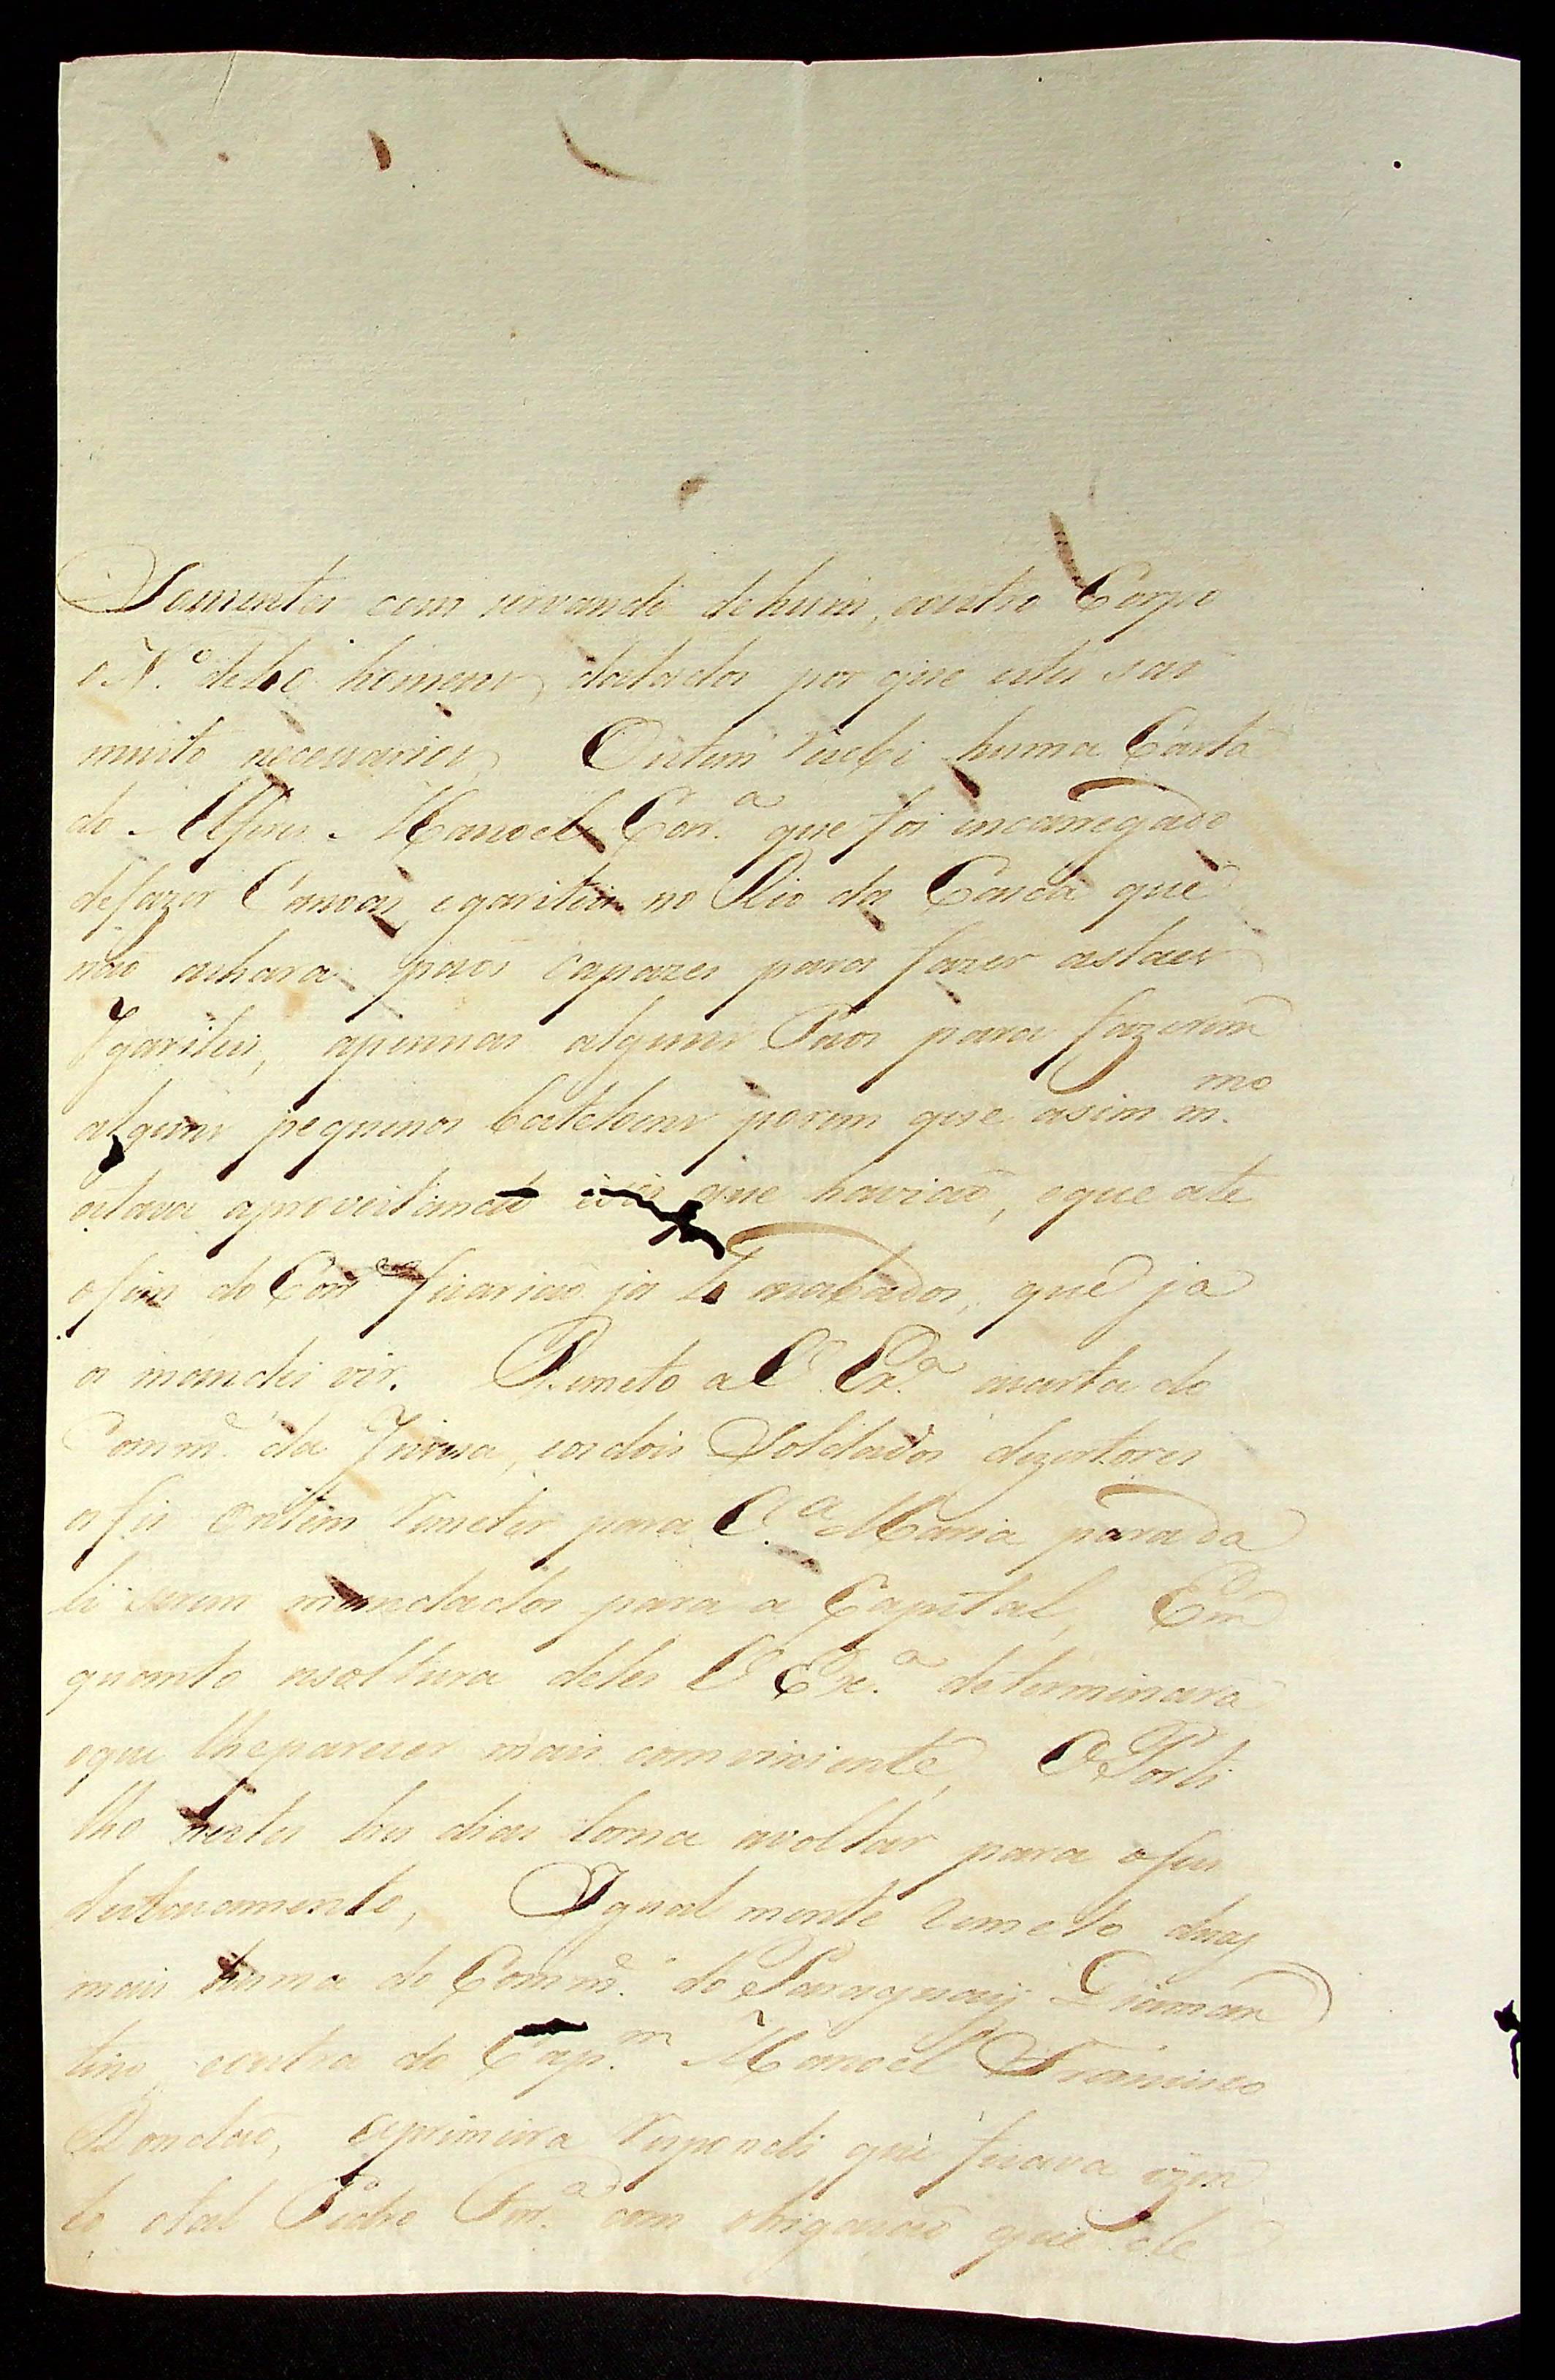 Somentes com servando de hum, eoutro Corpo
o N.º de 60 homens, doetados por que estes saõ
muito necessarios, Ontem recebi huma Carta
do Alferes Manoel Corr.ª que foi encarregado
defazer Canoas, egarites no Rio da Casca que
naõ achara paos capazes para fazer astaes
Ygarites, apennas alguns Paos para fazerem
alguns pequenos bateloens porem que asim m.mo
estava aproveitando esses que haviaõ, eque ate
ofim do Corr.e ficariaõ ja 4 acabados, que ja
os mandei vir. Remeto a V. Ex.ª acarta do
Comm.e da Juruena, eosdois Soldados dezertores
os fis ontem remeter para V.ª Maria para da
li serem mandados para a Capital, Em
quanto asoltura deles V Ex.ª determinara
oque lheparecer mais comviniente, O Porti
lho nestes tres dias torna avoltar para oseu
destacamento, Igual mente remeto duas
mais huma do Comm.e do Paraguay Diaman
tino eoutra do Cap.m Manoel Francisco
Rondaõ, aprimeira respondi que ficava izen
to otal Pedro For.ª com obrigacaõ que ele